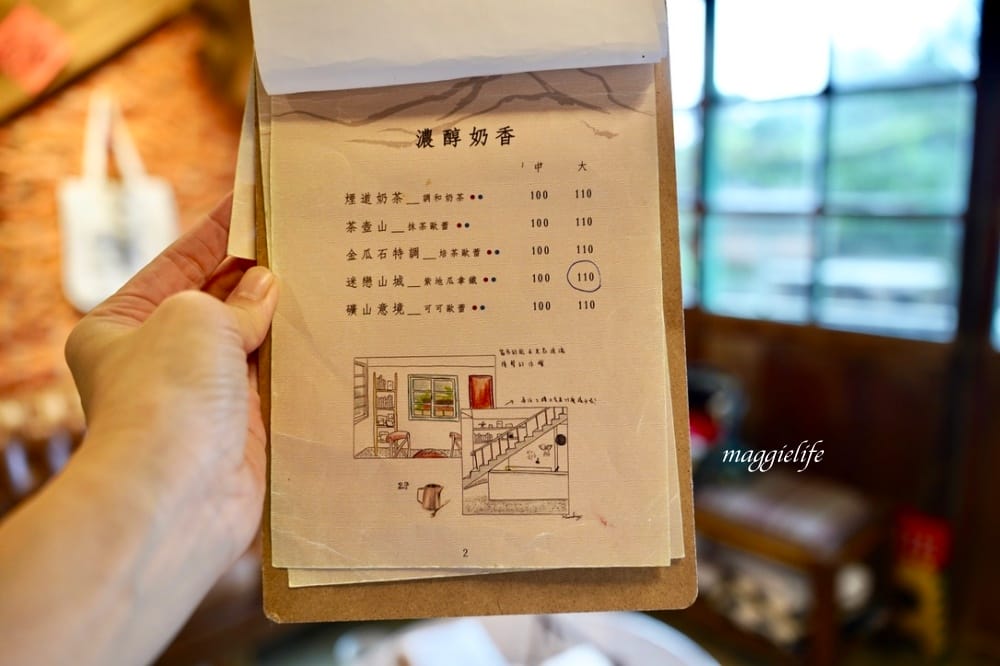 濃醇奶香
中 大
煙道奶茶__調和奶茶 100 110
茶壺山__抹茶歐蕾 100 110
金瓜石特調__焙茶歐蕾 100 110
迷戀山城__紫地瓜拿鐵 100 110
礦山意境__可可歐蕾 100 110
maggielife
2